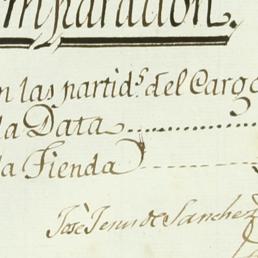 mparacion.
n las partid.s del Cargo
la Data
la Tienda
Jos̃e Jesus de Sanchez